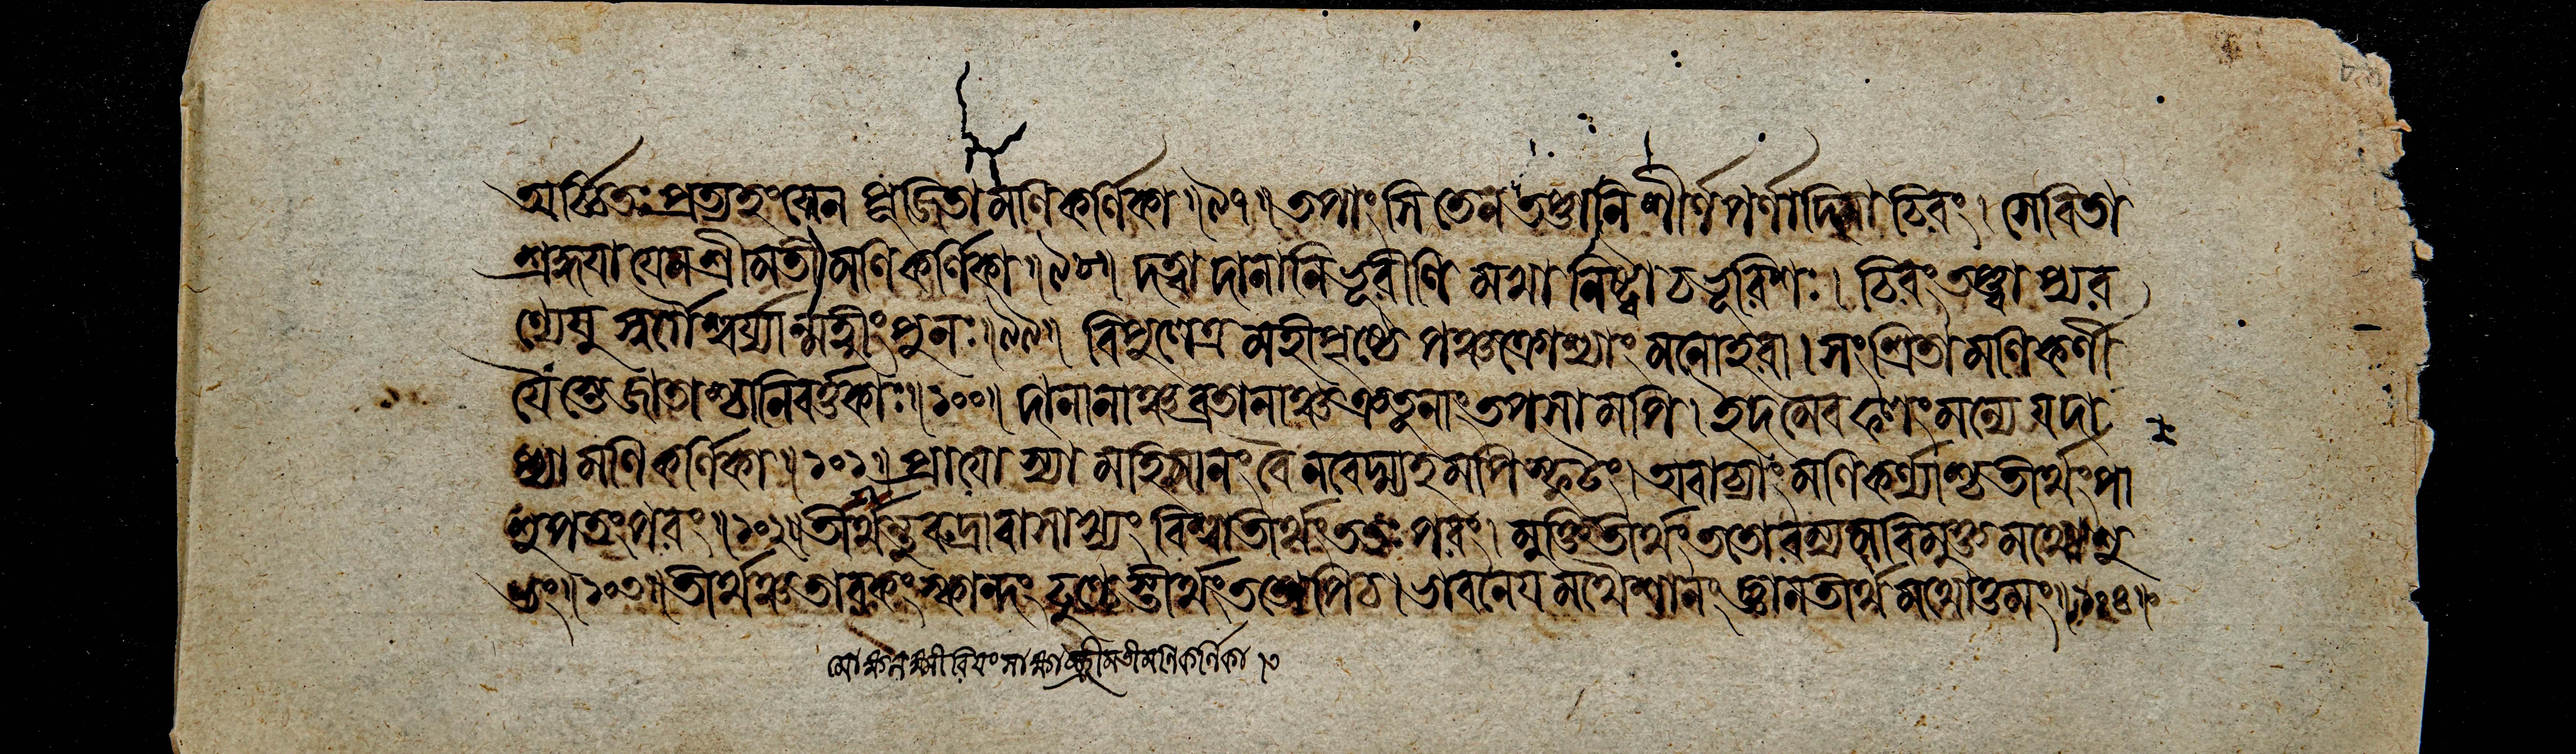 অর্চ্চিতঃ প্রত্যহং যেন পূজিতা মণিকর্ণিকা॥৯৭॥তপাংসি তেন তপ্তানি শীর্ণপর্ণাদিনা চিরং। সেবিতা
শ্রদ্ধয়া যেন শ্রীমতী মণিকর্ণিকা॥৯৮॥ দত্বা দানানি ভূরীণি মখানিষ্ট্বা চ ভূরিশঃ। চিরং তপ্ত্বাপ্যর
ণ্যেষু স্বর্গৈশ্বর্য্যান্মহীং পুনঃ॥৯৯॥ বিপুলেত্র মহীপৃষ্ঠে পঞ্চক্রোশ্যাং মনোহরা। সংশ্রিতা মণিকর্ণী
যৈস্তে জাতাশ্চানিবর্ত্তকাঃ॥১০০॥ দানানাঞ্চ ব্রতানাঞ্চ ক্রতুনাং তপসামপি। ইদমেব ফলং মন্যে যদা
প্যা মণিকর্ণিকা॥১০১॥ মহিমানং বৈ ন বেদ্ম্যহমপি স্ফুটং। অবাচ্যাং মণিকর্ণ্যাশ্চ তীর্থং পা
শুপতং পরং॥১০২॥তীর্থন্তু রুদ্রাবাসাখ্যং বিশ্বতীর্থং ততঃ পরং। মুক্তিতীর্থং ততো রম্যমবিমুক্তমথো শু
ভং॥১০৩॥তীর্থঞ্চ তারকং স্কান্দং ঢুণ্ঢেস্তীর্থং ততোপি চ। ভাবনেয়মথৈশানং জ্ঞানতীর্থমথোত্তমং॥১০৪॥
মোক্ষলক্ষ্মীরিয়ং সাক্ষাচ্ছ্রীমতী মণিকর্ণিকা।৩